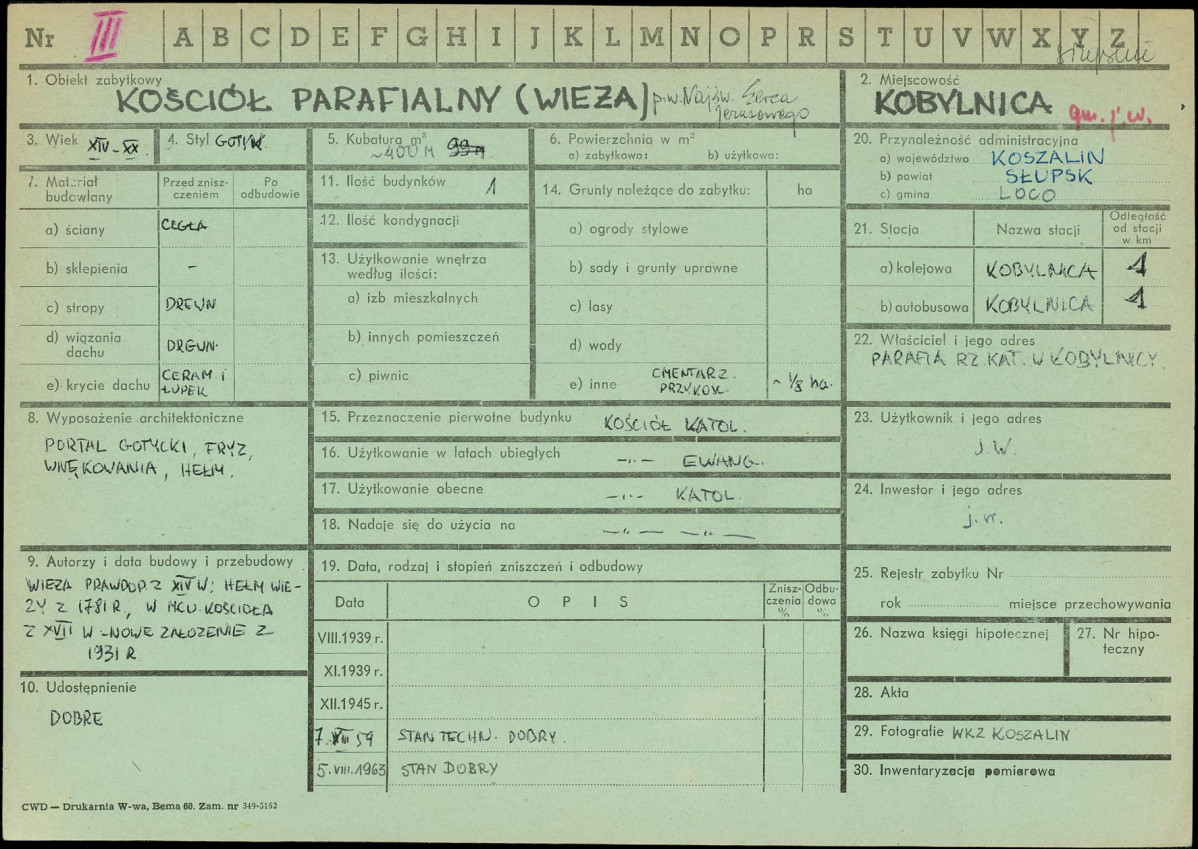 Nr III A B C D E F G H I J K L M N O P R S T U V W X Y Z
słupskie
1. Obiekt zabytkowy
KOŚCIÓŁ PARAFIALNY (WIEŻA) p.w. Najśw. Serca
Jezusowego
2. Miejscowość
KOBYLNICA
gm. j.w.
3. Wiek XIV-XX
4. Styl GOTYK
5. Kubatura m³
~400 M 99 M
6. Powierzchnia w m²
a) zabytkowa: b) użytkowa:
20. Przynależność administracyjna
a) województwo KOSZALIN
b) powiat SŁUPSK
c) gmina LOCO
7. Materiał
budowlany
Przed znisz-
czeniem
Po
odbudowie
a) ściany CEGŁA
b) sklepienia –
c) stropy DREWN
d) wiązania
dachu DREWN.
e) krycie dachu CERAM. I
ŁUPEK
11. Ilość budynków 1
12. Ilość kondygnacji
13. Użytkowanie wnętrza
według ilości:
a) izb mieszkalnych
b) innych pomieszczeń
c) piwnic
14. Grunty należące do zabytku: ha
a) ogrody stylowe
b) sady i grunty uprawne
c) lasy
d) wody
e) inne CMENTARZ.
PRZYKOŚC. ~ 1/8 ha.
21. Stacja Nazwa stacji
Odległość
od stacji
w km
a) kolejowa KOBYLNICA 1
b) autobusowa KOBYLNICA 1
22. Właściciel i jego adres
PARAFIA RZ. KAT. W KOBYLNICY.
8. Wyposażenie architektoniczne
PORTAL GOTYCKI, FRYZ,
WNĘKOWANIA, HEŁM.
15. Przeznaczenie pierwotne budynku KOŚCIÓŁ KATOL.
16. Użytkowanie w latach ubiegłych –„– EWANG.
17. Użytkowanie obecne –„– KATOL.
18. Nadaje się do użycia na –„– –„–
23. Użytkownik i jego adres
j. w.
24. Inwestor i jego adres
j. w.
9. Autorzy i data budowy i przebudowy
WIEŻA PRAWDOP. Z XIV W; HEŁM WIE-
ŻY Z 1781 R, W MCU KOŚCIOŁA
Z XVII W - NOWE ZAŁOŻENIE Z
1931 R
19. Data, rodzaj i stopień zniszczeń i odbudowy
Data OPIS
Znisz-
czenia
%
Odbu-
dowa
%
VIII.1939 r.
XI.1939 r.
XII.1945 r.
7. XII 59 STAN TECHN. DOBRY.
5. VIII. 1963 STAN DOBRY
25. Rejestr zabytku Nr
rok miejsce przechowywania
26. Nazwa księgi hipotecznej
27. Nr hipo-
teczny
10. Udostępnienie
DOBRE
28. Akta
29. Fotografie WKZ KOSZALIN
30. Inwentaryzacja pomiarowa
CWD — Drukarnia W-wa, Bema 60. Zam. nr 349-5162